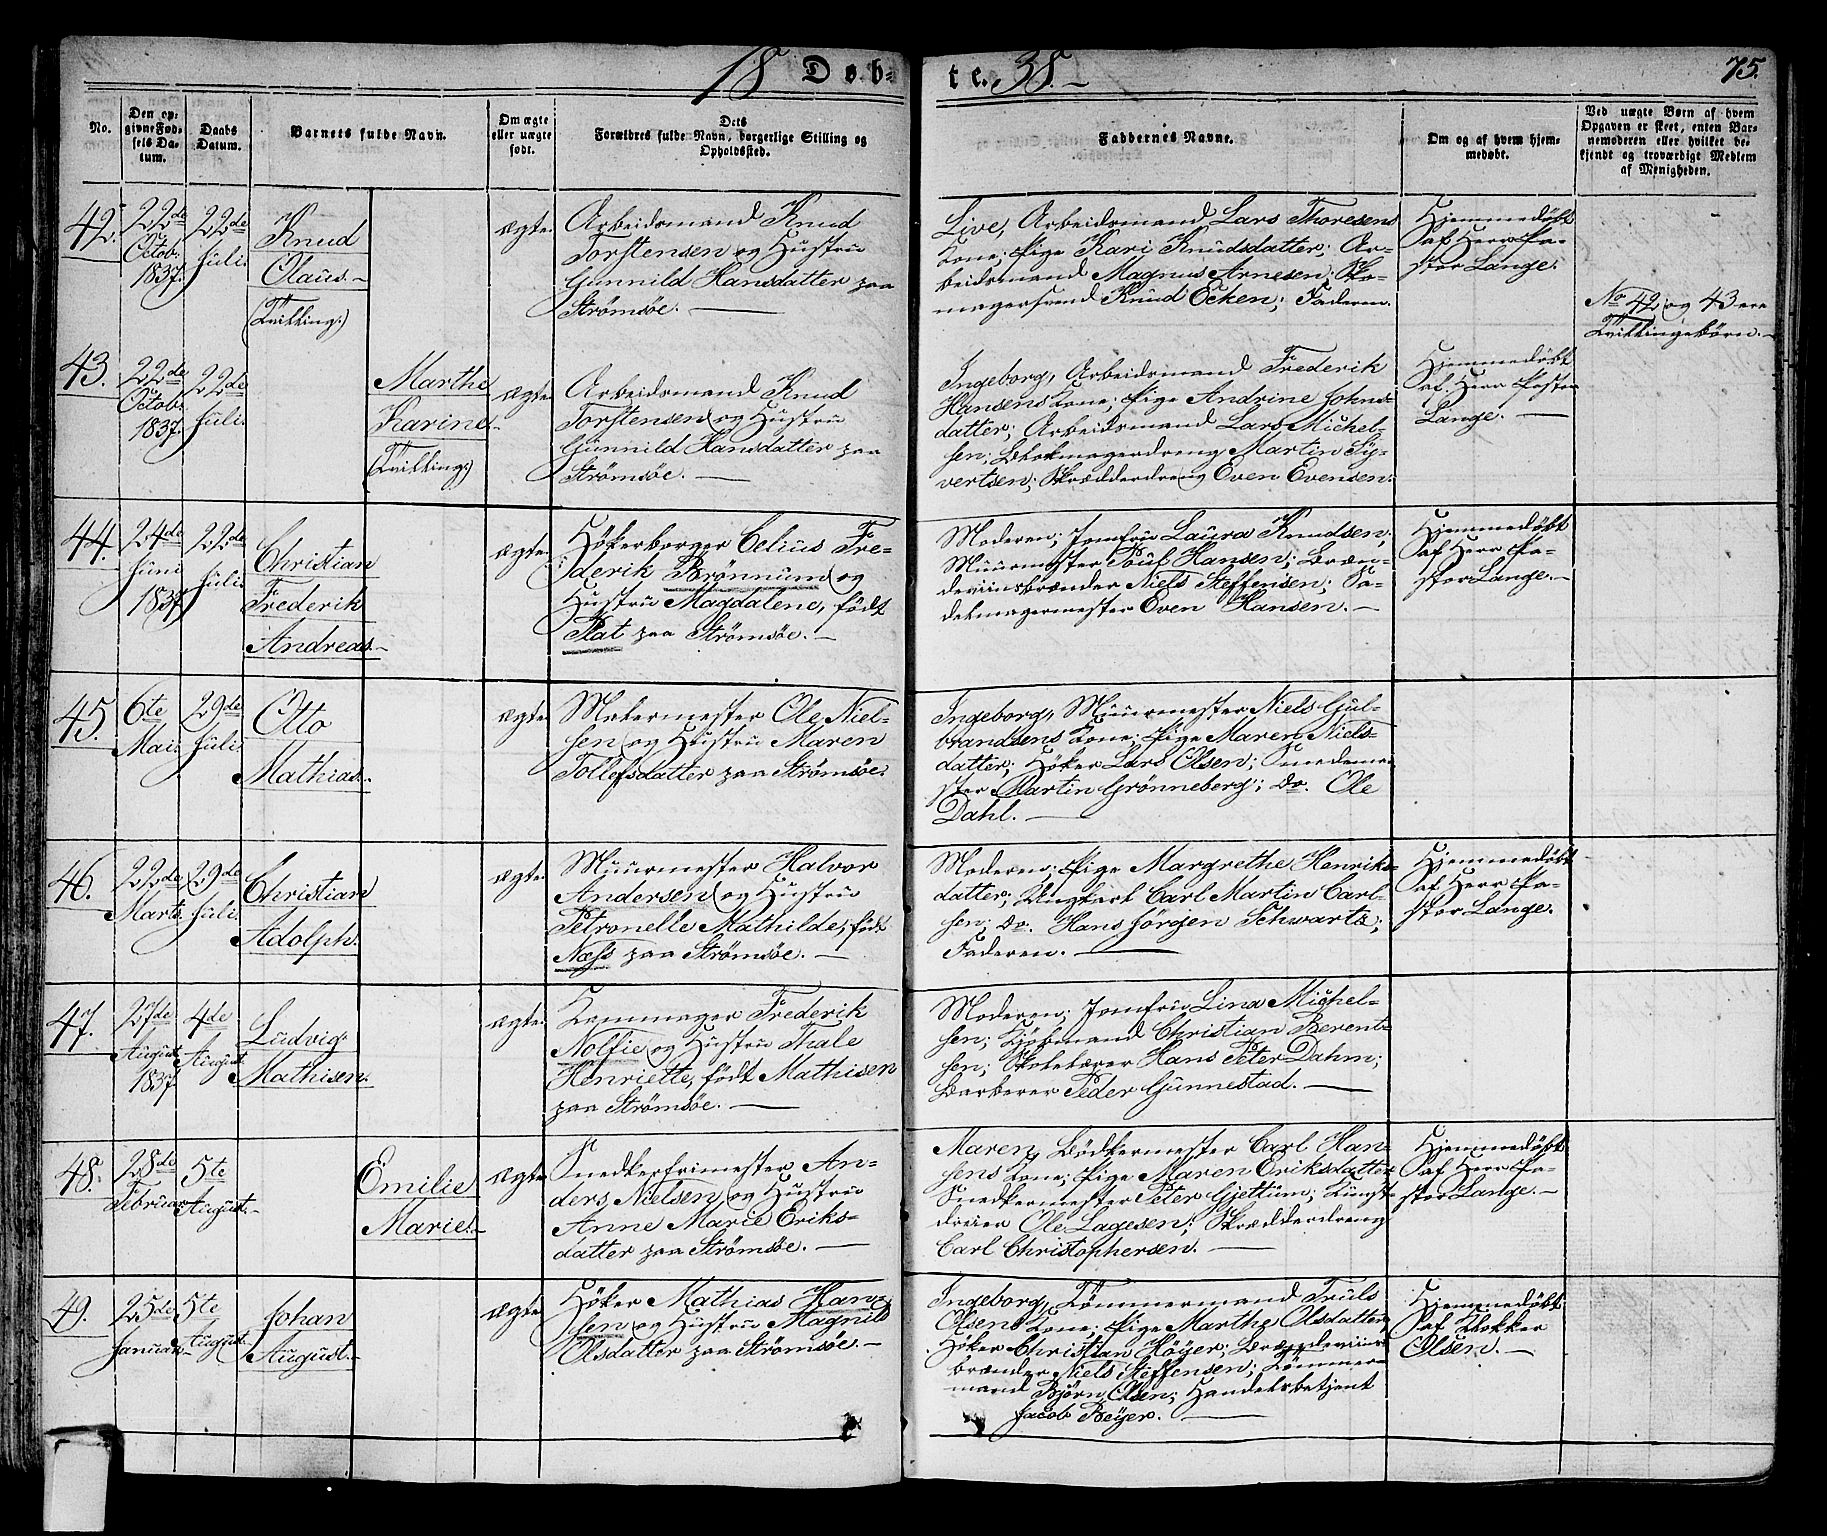 18 Dob=
te. 38.-
75.
No.
Den op=
givne Fød=
sels Da=
tum.
Daabs
Datum.
Barnets fulde Navn.
Om ægte
eller uægte
født.
Dets
Forældres fulde Navn, borgerlige Stilling og
Opholdssted.
Faddernes Navne.
Om og af hvem hjem=
medøbt.
Ved uægte Børn af hvem
Opgaven er skeet, enten Bar=
nemoderen eller hvilket be=
kjendt og troværdigt Medlem
af Menigheden.
42.
22de
Octob.
1837.
22de
Juli.
Knud
Olaus.-
(Tvilling:)
ægte.
Arbeidsmand Knud
Torstensen og Hustru
Gunnild Hansdatter paa
Strømsøe. —
Live, Arbeidsmand Lars Thoresens
Kone; Pige Kari Knudsdatter; Ar=
beidsmand Magnus Arnesen; Sko=
magersvend Knud Ecken; Faderen.
Hjemmedøbt
af Herr Pa=
stor Lange.
No 42 og 43 ere
Tvillingebørn.-
43.
22de
Octob.
1837.
22de
Juli.
Marthe
Karine.-
(Tvilling:)
ægte.
Arbeidsmand Knud
Torstensen og Hustru
Gunnild Hansdatter paa
Strømsøe. —
Ingeborg, Arbeidsmand Frederik
Hansens Kone; Pige Andrine Johns=
datter; Arbeidsmand Lars Michel=
sen; Blokmagerdreng Martin Sy=
vertsen; Skrædderdreng Even Evensen.
Hjemmedøbt
af Herr Pastor
Lange. —
44.
24de
Juni
1837
22de
Juli.
Christian
Frederik
Andreas.-
ægte.
Høkerborger Celius Fre=
derik Brønnum og
Hustru Magdalene, født
Plat paa Strømsøe.-
Moderen; Jomfru Laura Knudsen;
Muurmester Poul Hansen; Bræn=
deviinsbrænder Niels Steffensen; Sa=
delmagermester Even Hansen.-
Hjemmedøbt
af Herr Pa=
stor Lange.-
45.
6te
Mai.
29de
Juli.
Otto
Mathias.-
ægte.
Malermester Ole Niel=
sen og Hustru Maren
Tollefsdatter paa Strømsøe.
Ingeborg, Muurmester Niels Gul=
brandsens Kone; Pige Maren Niels=
datter; Høker Lars Olsen; Smedeme=
ster Martin Grønneberg; Do. Ole
Dahl. —
46.
22de
Marts.
29de
Juli.
Christian
Adolph.
ægte.
Muurmester Halvor
Andersen og Hustru
Petronelle Mathilde, født
Næss paa Strømsøe.-
Moderen; Pige Margrethe Henriks=
datter; Ungkarl Carl Martin Carl=
sen; Do. Hans Jørgen Schwartz;
Faderen. —
Hjemmedøbt
af Herr Pa=
stor Lange.
47.
27de
August.
1837
4de
August.
Ludvig
Mathisen.
ægte.
Kammager Frederik
Nolfie og Hustru Thale
Henriette, født Mathisen
paa Strømsøe. —
Moderen; Jomfru Lina Michel=
sen; Kjøbmand Christian Berent=
sen; Skolelærer Hans Peter Dahm;
Barberer Peder Gunnestad. —
48.
28de
Februar
5te
August.-
Emilie
Marie.-
ægte.
Snedkerfrimester An=
ders Nielsen og Hustru
Anne Marie Eriks=
datter paa Strømsøe. —
Maren, Bødkermester Carl Han=
sens Kone; Pige Maren Eriksdatter
Snedkermester Peter Gjettum; Kunst=
dreier Ole Lagesen; Skrædderdreng
Carl Christophersen. —
Hjemmedøbt
af Herr Pa=
stor Lange.-
49.
25de
Januar.-
5te
August.
Johan
August.-
ægte.
Høker Mathias Han=
sen og Hustru Magnild
Olsdatter paa Strømsøe.-
Ingeborg, Tømmermand Truls
Olsens Kone; Pige Marthe Olsdatter,
Høker Christian Høyer; Brændeviins=
brænder Niels Steffensen; Tømmer=
mand Bjørn Olsen; Handelsbetjent
Jacob Beyer. —
Hjemmedøbt
af Klokker
Olsen.-